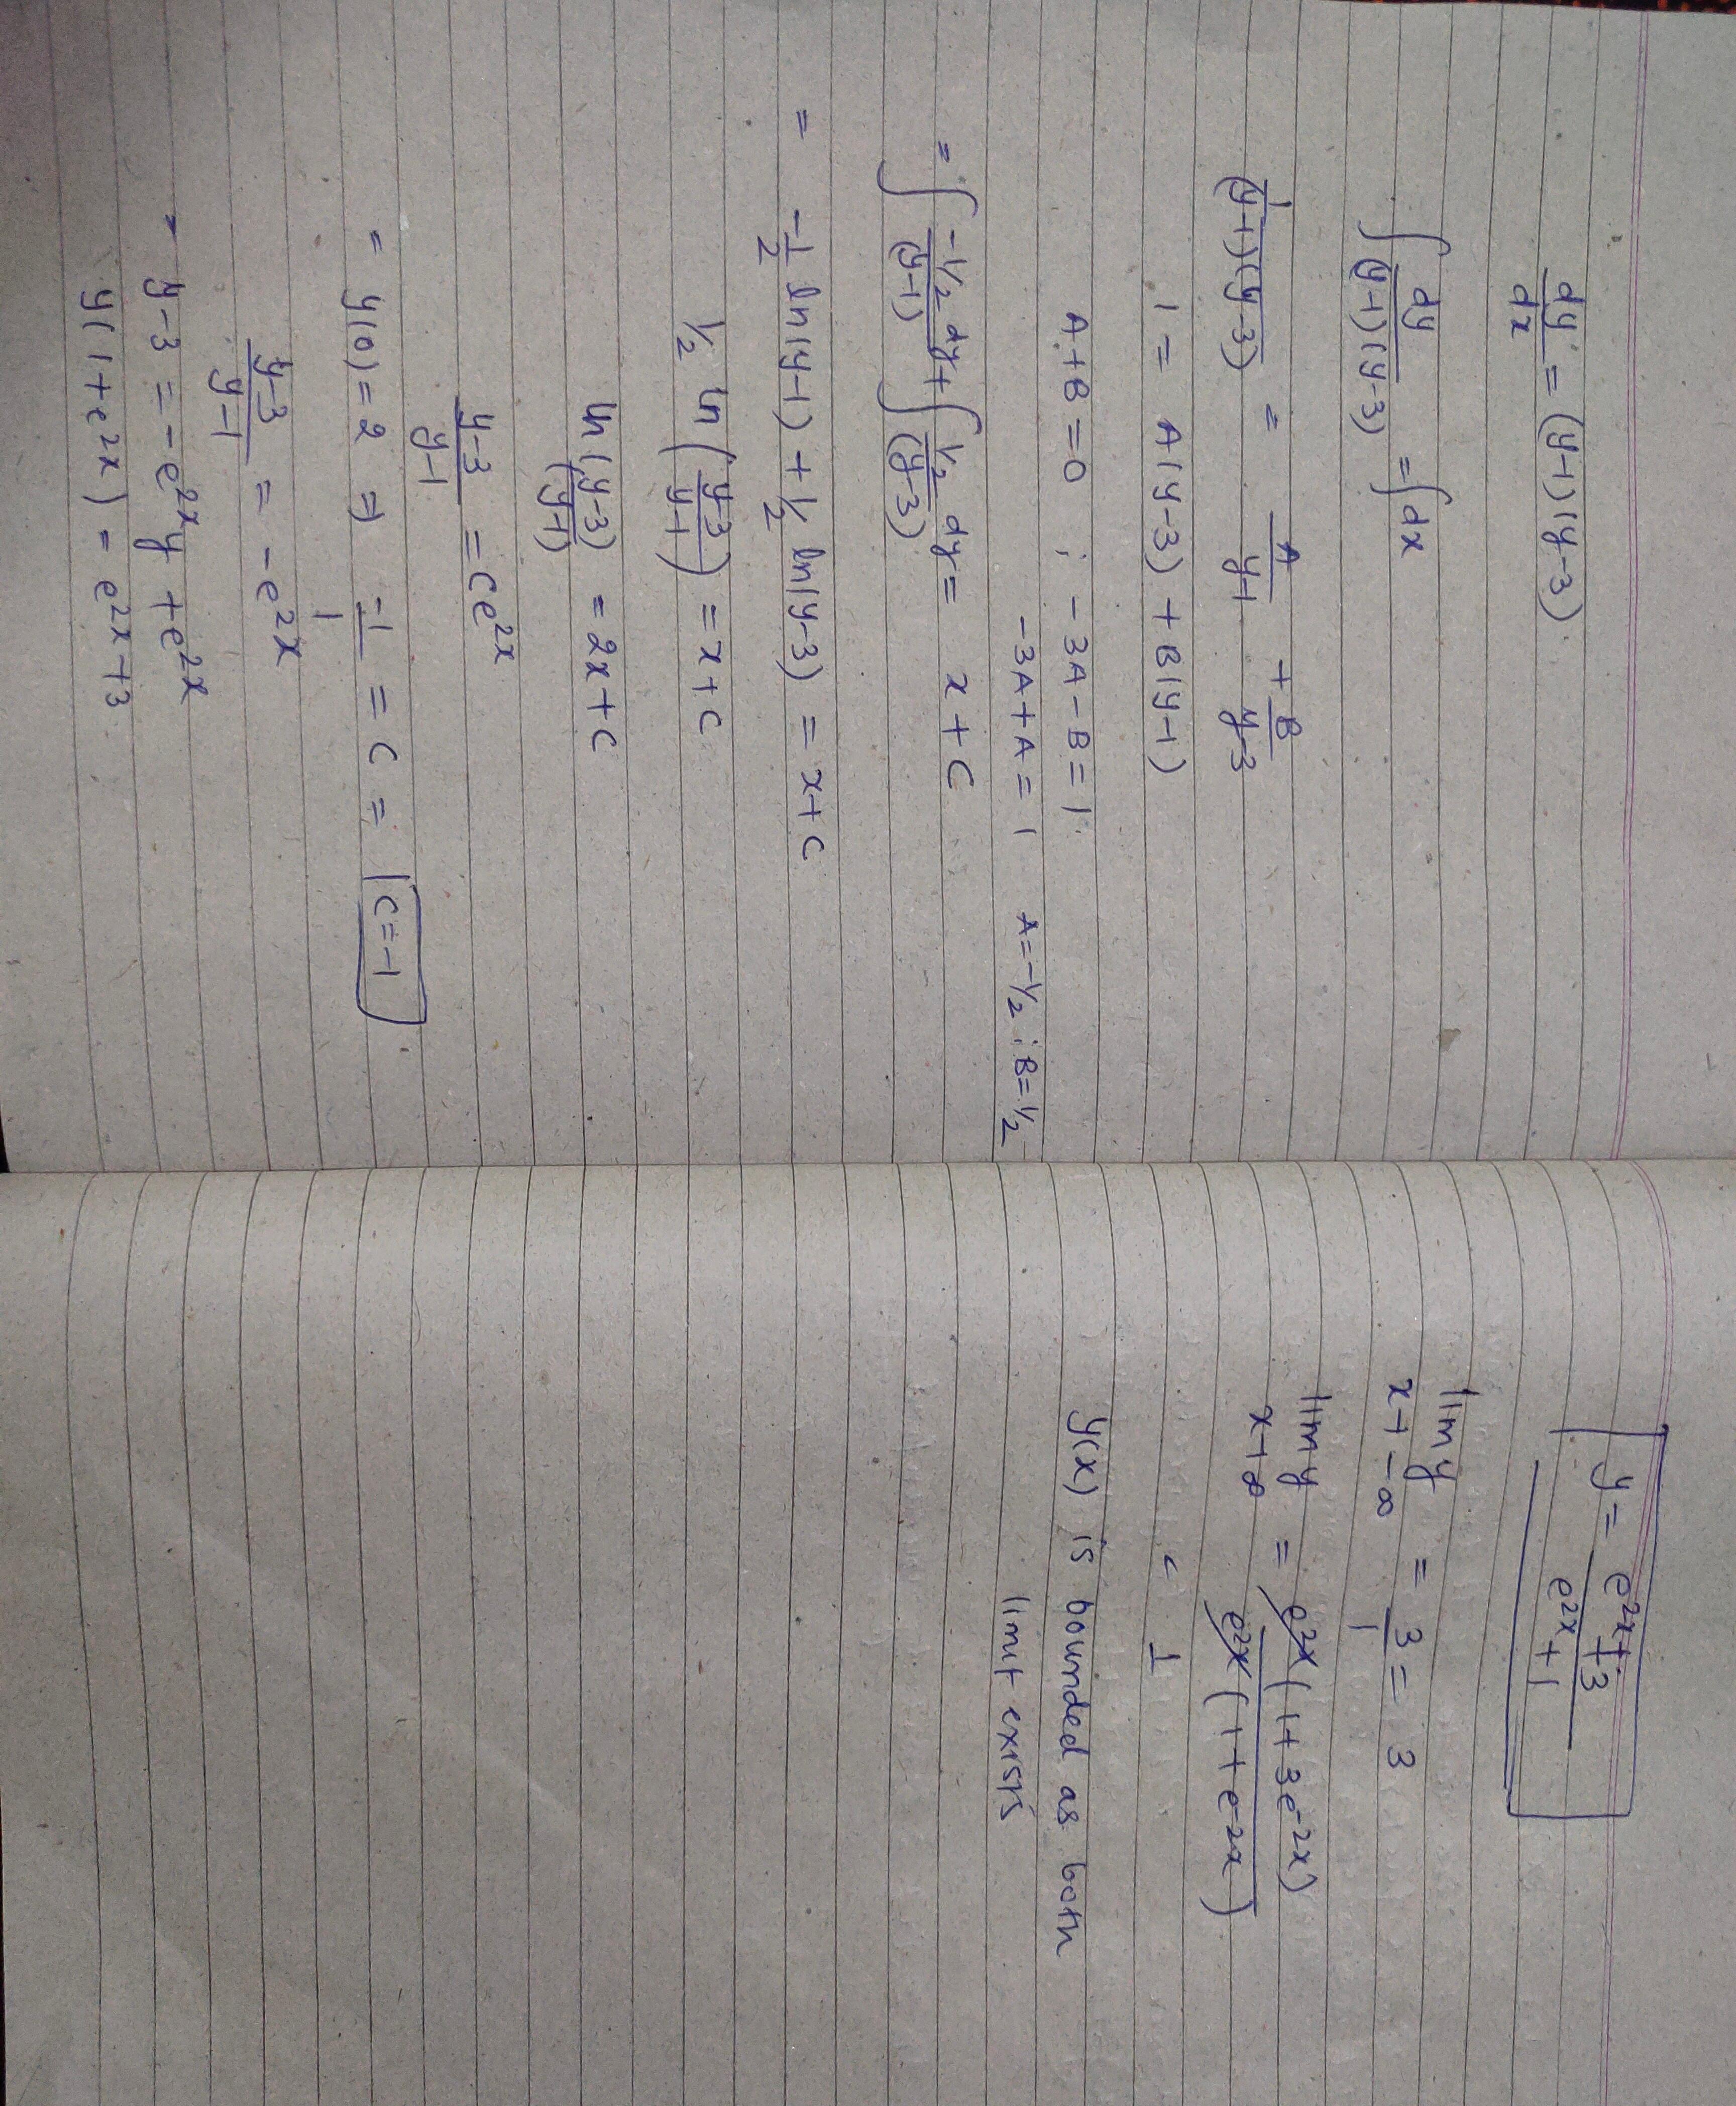 dy/dx = (y-1)(y-3)
∫ dy/((y-1)(y-3)) = ∫dx
1/((y-1)(y-3)) = A/(y-1) + B/(y-3)
1 = A(y-3) + B(y-1)
A+B=0 ; -3A-B=1
-3A+A=1 A=-1/2 ; B=1/2
= ∫ (-1/2)/(y-1) dy + ∫ (1/2)/(y-3) dy = x+C
= -1/2 ln(y-1) + 1/2 ln(y-3) = x+C
1/2 ln((y-3)/(y-1)) = x+C
ln((y-3)/(y-1)) = 2x+C
(y-3)/(y-1) = Ce^2x
= y(0)=2 ⇒ -1/1 = C = C=-1
(y-3)/(y-1) = -e^2x
= y-3 = -e^2x y + e^2x
y(1+e^2x) = e^2x+3
y = (e^2x+3)/(e^2x+1)
lim y x→-∞ = 3/1 = 3
lim y x→∞ = e^2x(1+3e^-2x)/(e^2x(1+e^-2x))
= 1
y(x) is bounded as both
limit exists